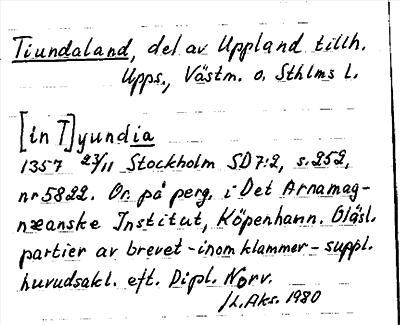 Tiundaland, del av Uppland tillh.
Upps., Västm. o. Sthlms l.
[in T]yundia
1357 23/11 Stockholm SD7:2, s. 252,
nr 5822. Or. på perg. i Det Arnamag-
næanske Institut, Köpenhamn. Oläsl.
partier av brevet - inom klammer - suppl.
huvudsakl. eft. Dipl. Norv.
/L. Aks. 1980